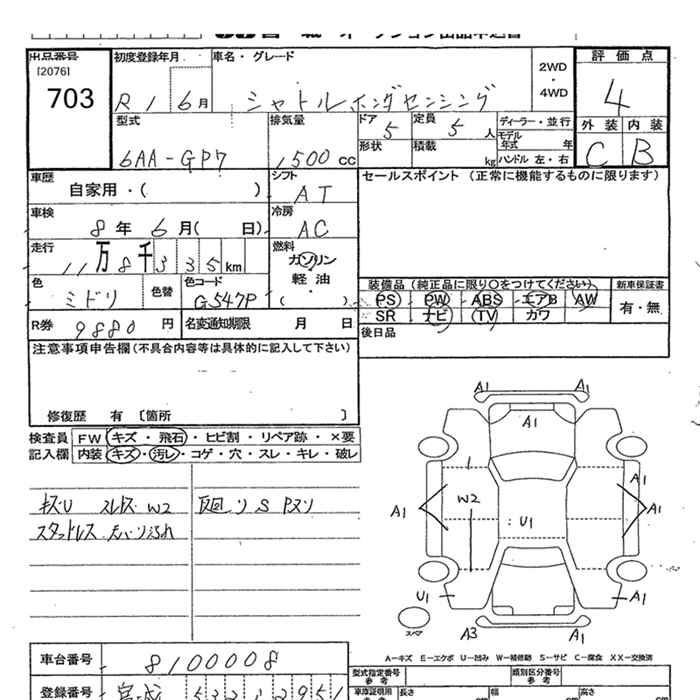 出品番号 初度登録年月 車名・グレード 評価点
[2076]
703
R1 6月 シャトルホンダセンシング 2WD・4WD 4
型式 排気量 ドア 定員 ディーラー・並行 外装 内装
6AA-GP7 1500cc 5 5人 モデル年式 年 C B
形状 積載 kg ハンドル 左・右
車歴 シフト セールスポイント (正常に機能するものに限ります)
自家用・( ) AT
車検 冷房
8年6月( 日) AC
走行 燃料
11万8千335km ガソリン
軽油
( )
色 色替 色コード 装備品 (純正品に限り○をつけてください) 新車保証書
ミドリ G547P PS PW ABS エアB AW 有・無
SR ナビ TV カワ
R券 9880円 名変通知期限 月 日 後日品
注意事項申告欄(不具合内容等は具体的に記入して下さい)
修復歴 有 〔箇所 〕
検査員 FW キズ・飛石・ヒビ割・リペア跡・×要
記入欄 内装 キズ・汚レ・コゲ・穴・スレ・キレ・破レ
キズU スレキズ W2
A1 A1
A1
A1
W2
A1 A1
U1
U1 A1
スペア
A3 A1
A-キズ E-エクボ U-凹み W-補修跡 S-サビ C-腐食 XX-交換済
車台番号 8100008
型式指定番号 参考 類別区分番号 参考
登録番号 宮城
車庫証明用 長さ 幅 高さ